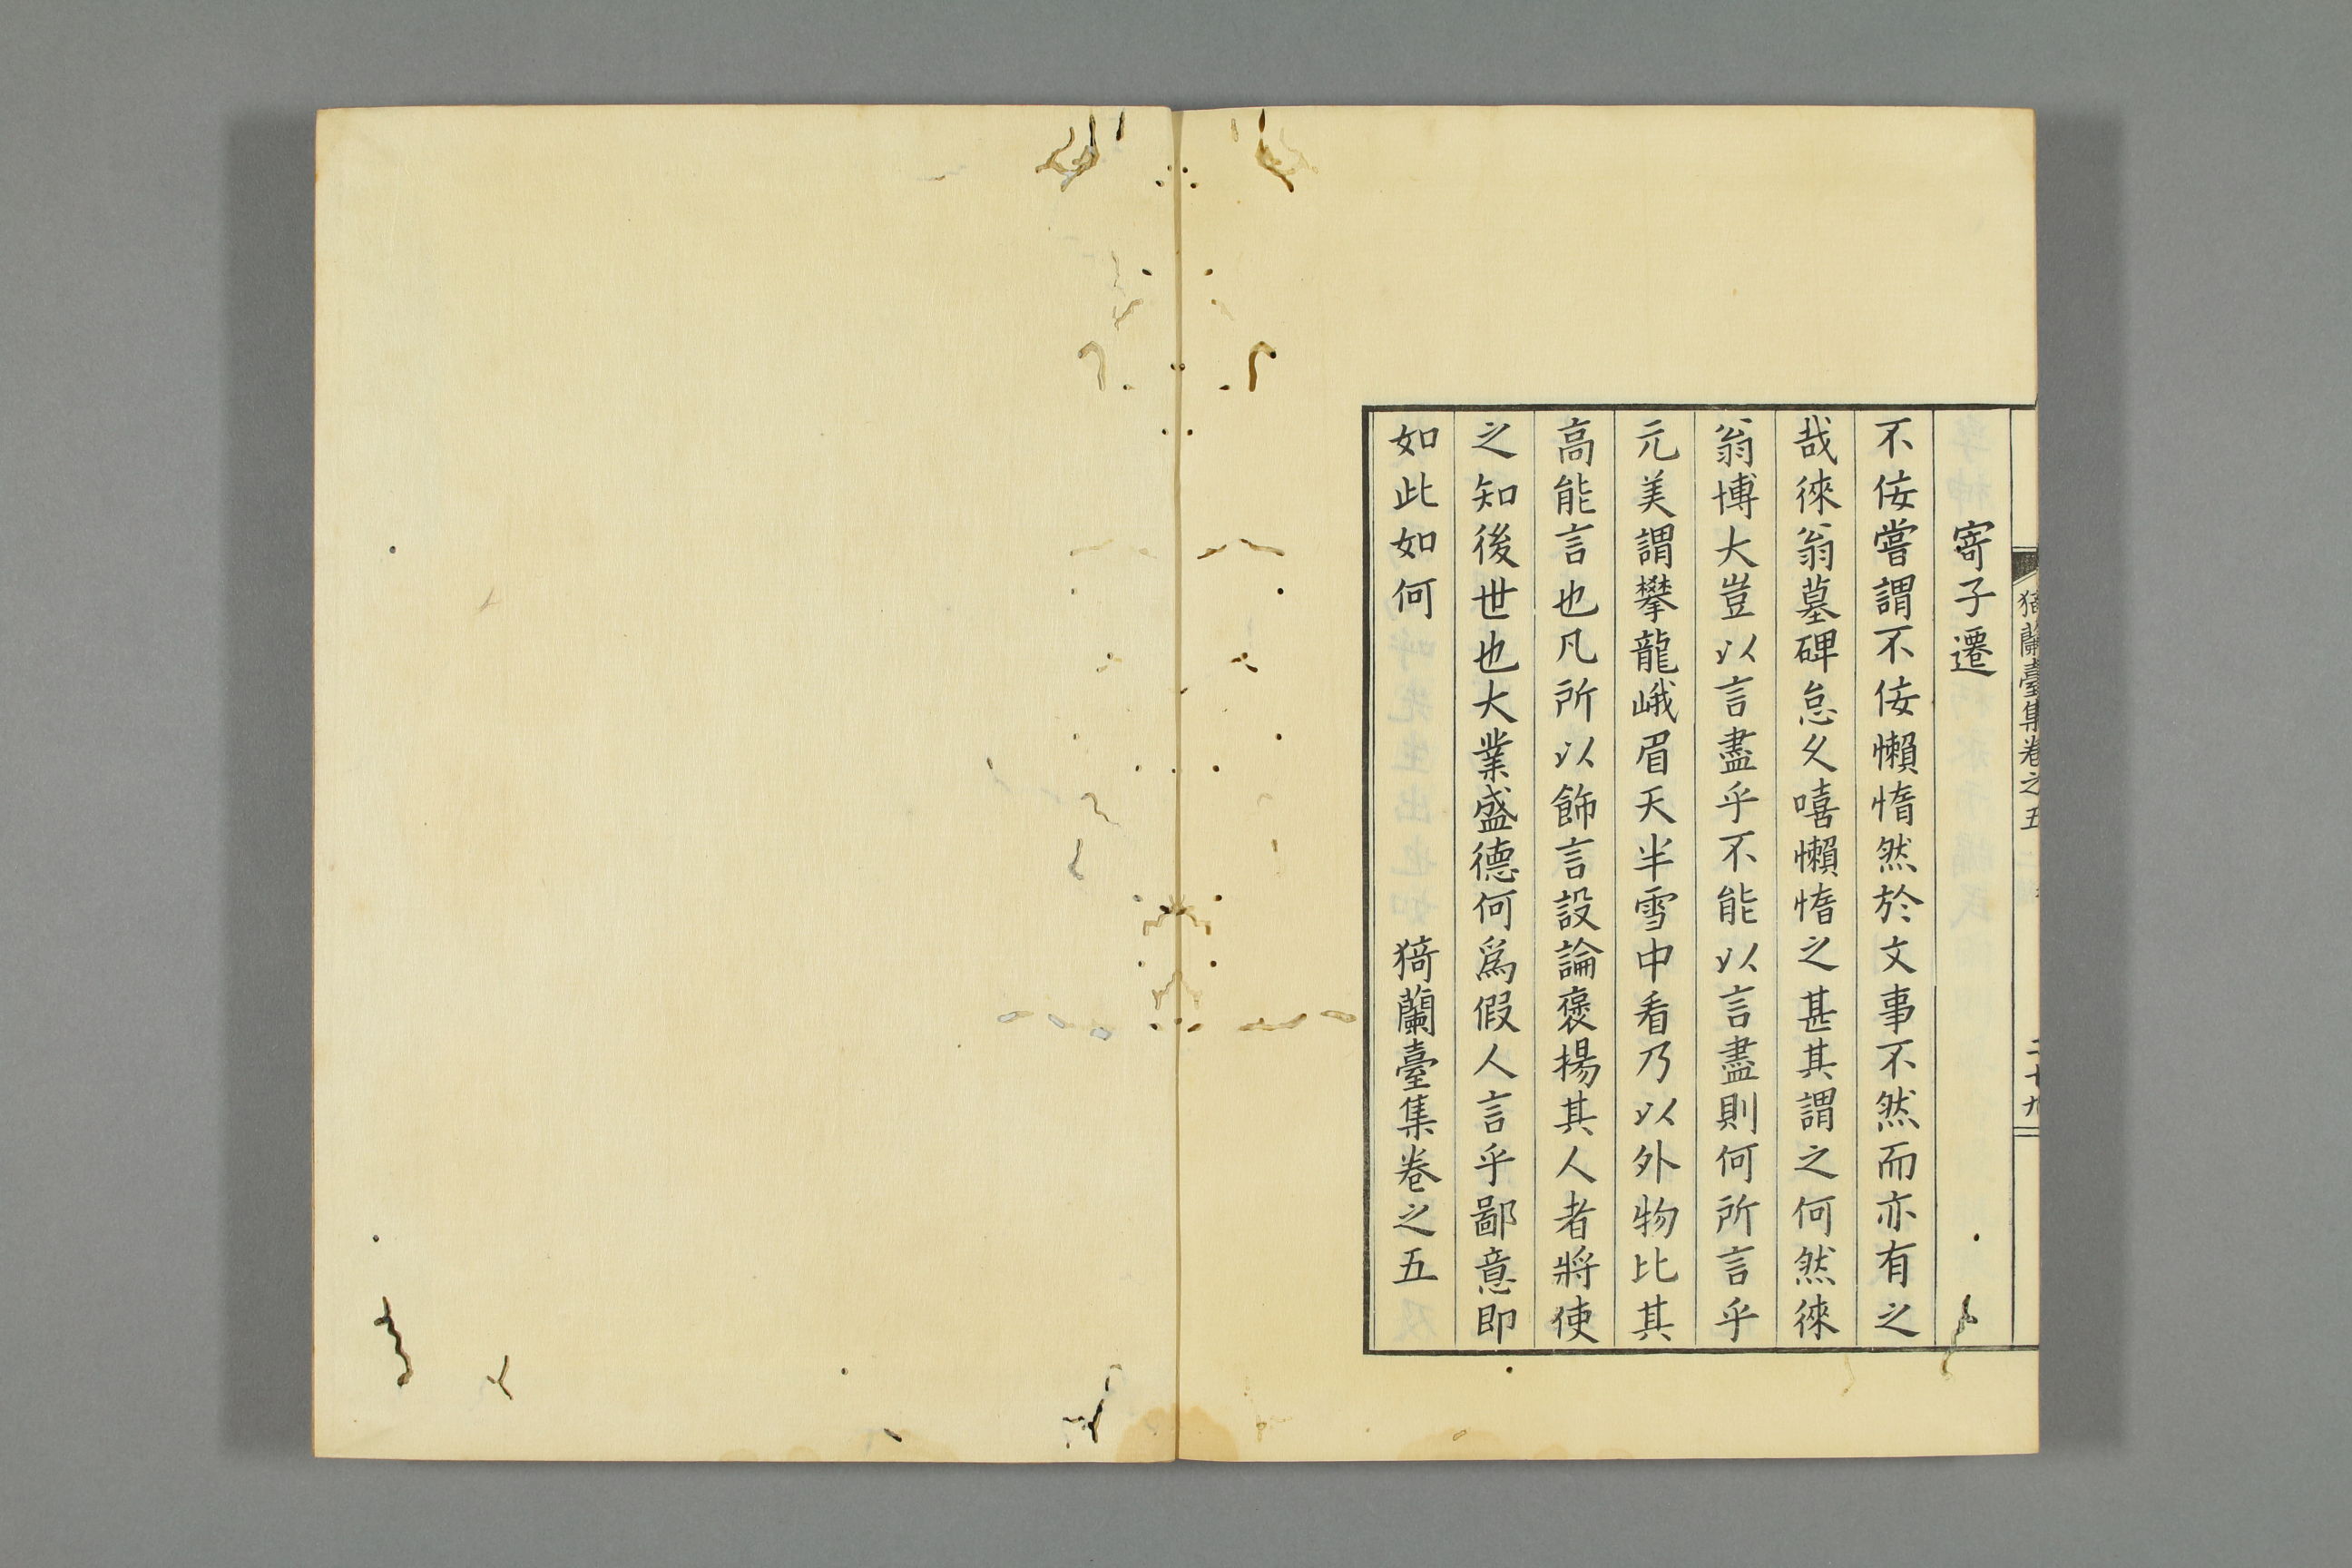 猗蘭臺集卷之五
二十九
寄子遷
不佞嘗謂不佞懶惰然於文事不然而亦有之
哉徠翁墓碑怠久嘻懶惰之甚其謂之何然徠
翁博大豈以言盡乎不能以言盡則何所言乎
元美謂攀龍峨眉天半雪中看乃以外物比其
高能言也凡所以飾言設論褒揚其人者將使
之知後世也大業盛德何爲假人言乎鄙意即
如此如何
猗蘭臺集卷之五